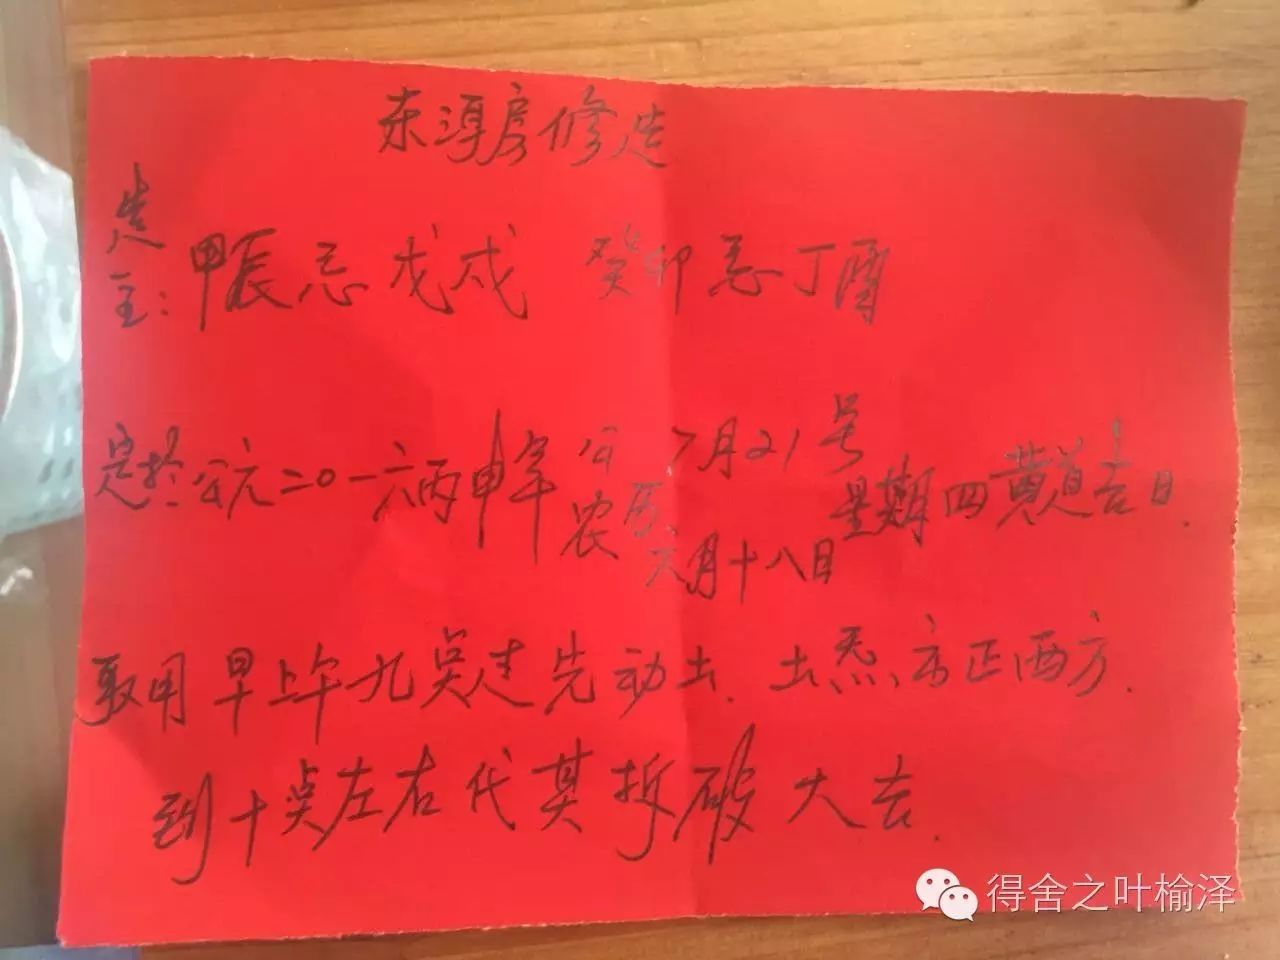 东淳房修造
造主：甲辰忌戊戌 癸卯忌丁酉
定於公元二〇一六丙申年公农历7月21号六月十八日星期四黄道吉日.
取用早上午九点先动土.土.正西方.
到十点左右代其拆破大吉.
得舍之叶榆泽